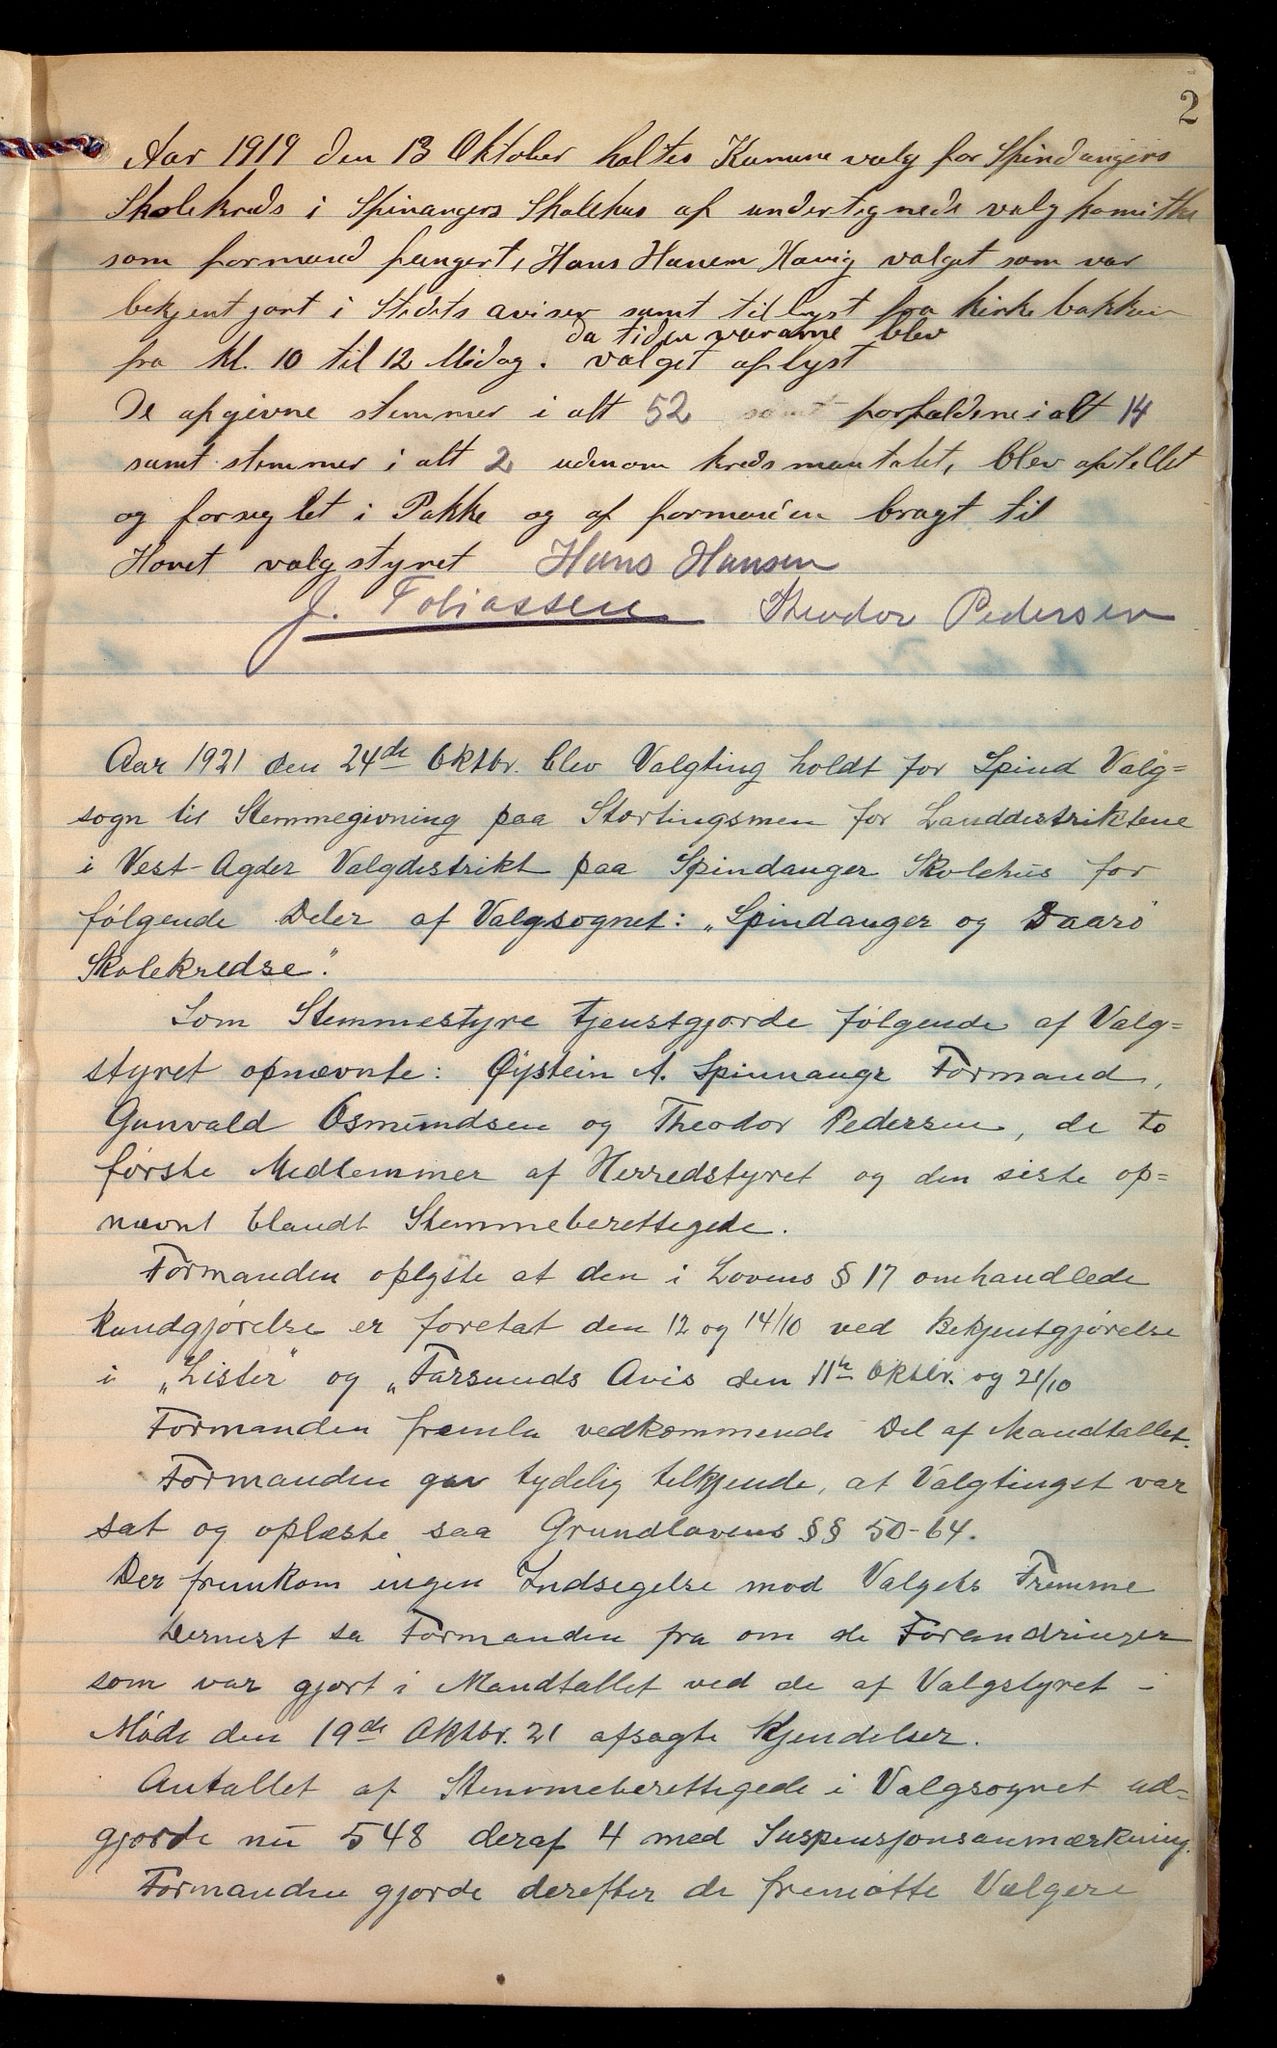 2
Aar 1919 den 13 Oktober holtes Kumune valg for Spindangers
Skolekreds i Spinangers Skolehus af undertegnede valg komithe
som formand fungert, Hans Hansen Havig valget som var
bekjent gjort i Stedets aviser samt tillyst fra kirke bakken
da tiden var ame blev
fra kl. 10 til 12 Midag. valget aflyst
De afgivne stemmer i alt 52 samt forfaldene i alt 14
samt stemmer i alt 2 udenom kreds mantalet, blev aftellet
og forseglet i Pakke og af formanden bragt til
Hovet valgstyret Hans Hansen
J. Tobiassen Theodor Pedersen
Aar 1921 den 24de Oktbr. blev Valgting holdt for Spind Valg=
sogn til Stemmegivning paa Stortingsmen for Landdistriktene
i Vest-Agder Valgdistrikt paa Spindanger Skolehus for
følgende Deler af Valgsognet: „Spindanger og Daarø
Skolekredse".
Som Stemmestyre tjenstgjorde følgende af Valg=
styret opnævnte: Øystein A. Spinnangr Formand,
Gunvald Osmundsen og Theodor Pedersen, de to
første Medlemmer af Herredstyret og den siste op=
nævnt blandt Stemmeberettigede.
Formanden oplyste at den i Lovens § 17 omhandlede
Kundgjørelse er foretat den 12 og 14/10 ved Bekjentgjørelse
i „Lister" og „Farsunds Avis den 11te Oktbr. og 21/10
Formanden fremla vedkommende Del af Mandtallet.
Formanden gav tydelig tilkjende, at Valgtinget var
sat og oplæste saa Grundlovens §§ 50-64.
Der fremkom ingen Indsigelse mod Valgets Fremme
Dernest sa Formanden fra om de Forandringer
som var gjort i Mandtallet ved de af Valgstyret i
Møde den 19de Oktbr. 21 afsagte Kjendelser.
Antallet af Stemmeberettigede i Valgsognet ud=
gjorde nu 548 deraf 4 med Suspensjonsanmærkning.
Formanden gjorde derefter de fremøtte Vælgere